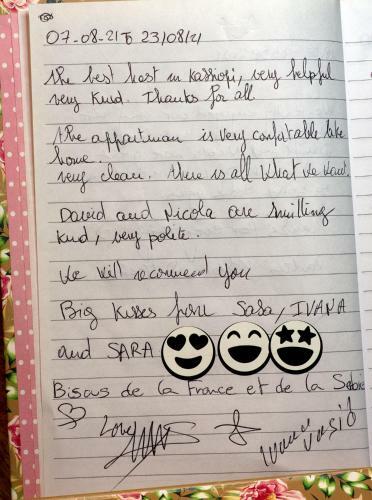 07-08-21 To 23/08/21
the best host in Kassiopi, very helpful
very kind. Thanks for all
the appartman is very confortable like
home.
very clean. there is all what we want.
David and Nicola are smilling
kind, very polite.
We will recommend you
Big kisses from Sasa, IVANA
and SARA
Bisous de la France et de la
Love
Ivana